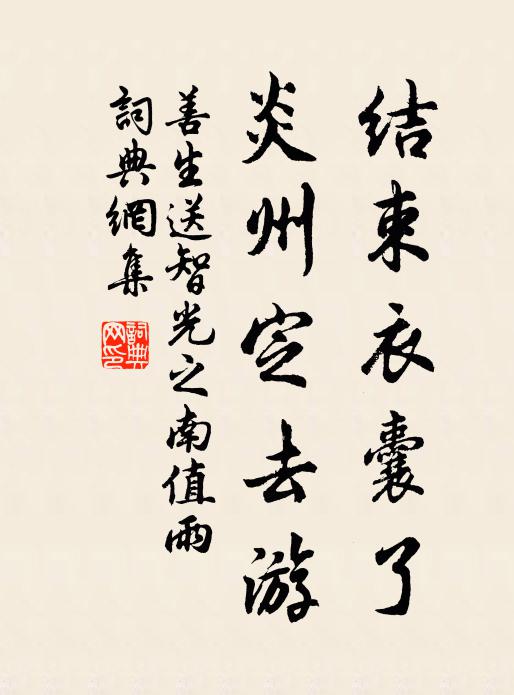 结束衣囊了
炎州定去游
善生送智光之南值雨
詞典網集
詞典
网印